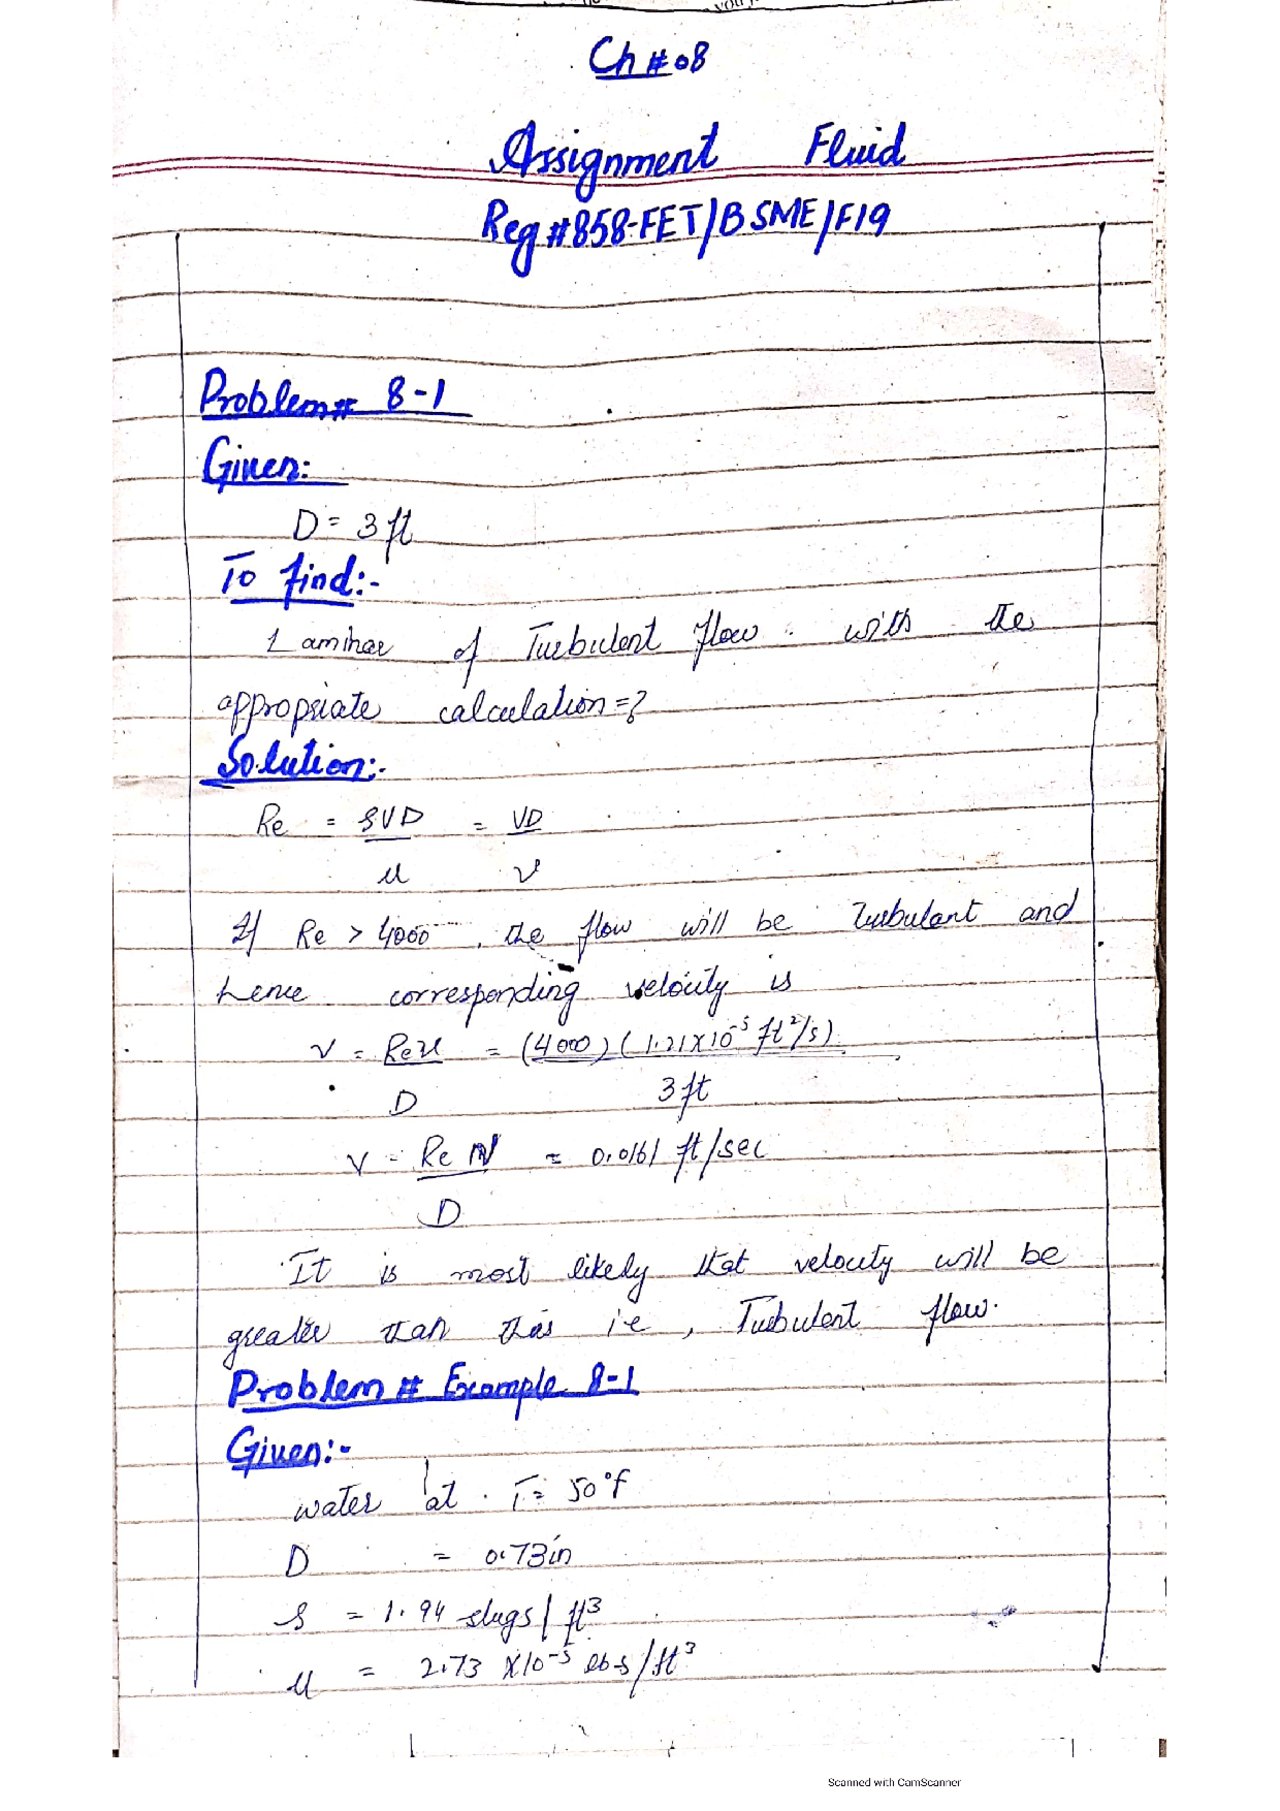 Ch # 08
Assignment Fluid
Reg # 858-FET/BSME/F19
Problem# 8-1
Given:
D = 3 ft
To find:-
Laminar of Turbulent flow. with the
appropriate calculation=?
Solution:-
Re = ρVD = VD
μ ν
If Re > 4000 , the flow will be Turbulant and
hence corresponding velocity is
V = Reν = (4000) (1.21×10⁻⁵ ft²/s)
D 3 ft
V = Re ν = 0.0161 ft/sec
D
It is most likely that velocity will be
greater than this i.e, Turbulent flow.
Problem # Example 8-1
Given:-
water at T = 50°f
D = 0.73in
ρ = 1.94 slugs/ft³
μ = 2.73 ×10⁻⁵ lb-s/ft³
Scanned with CamScanner